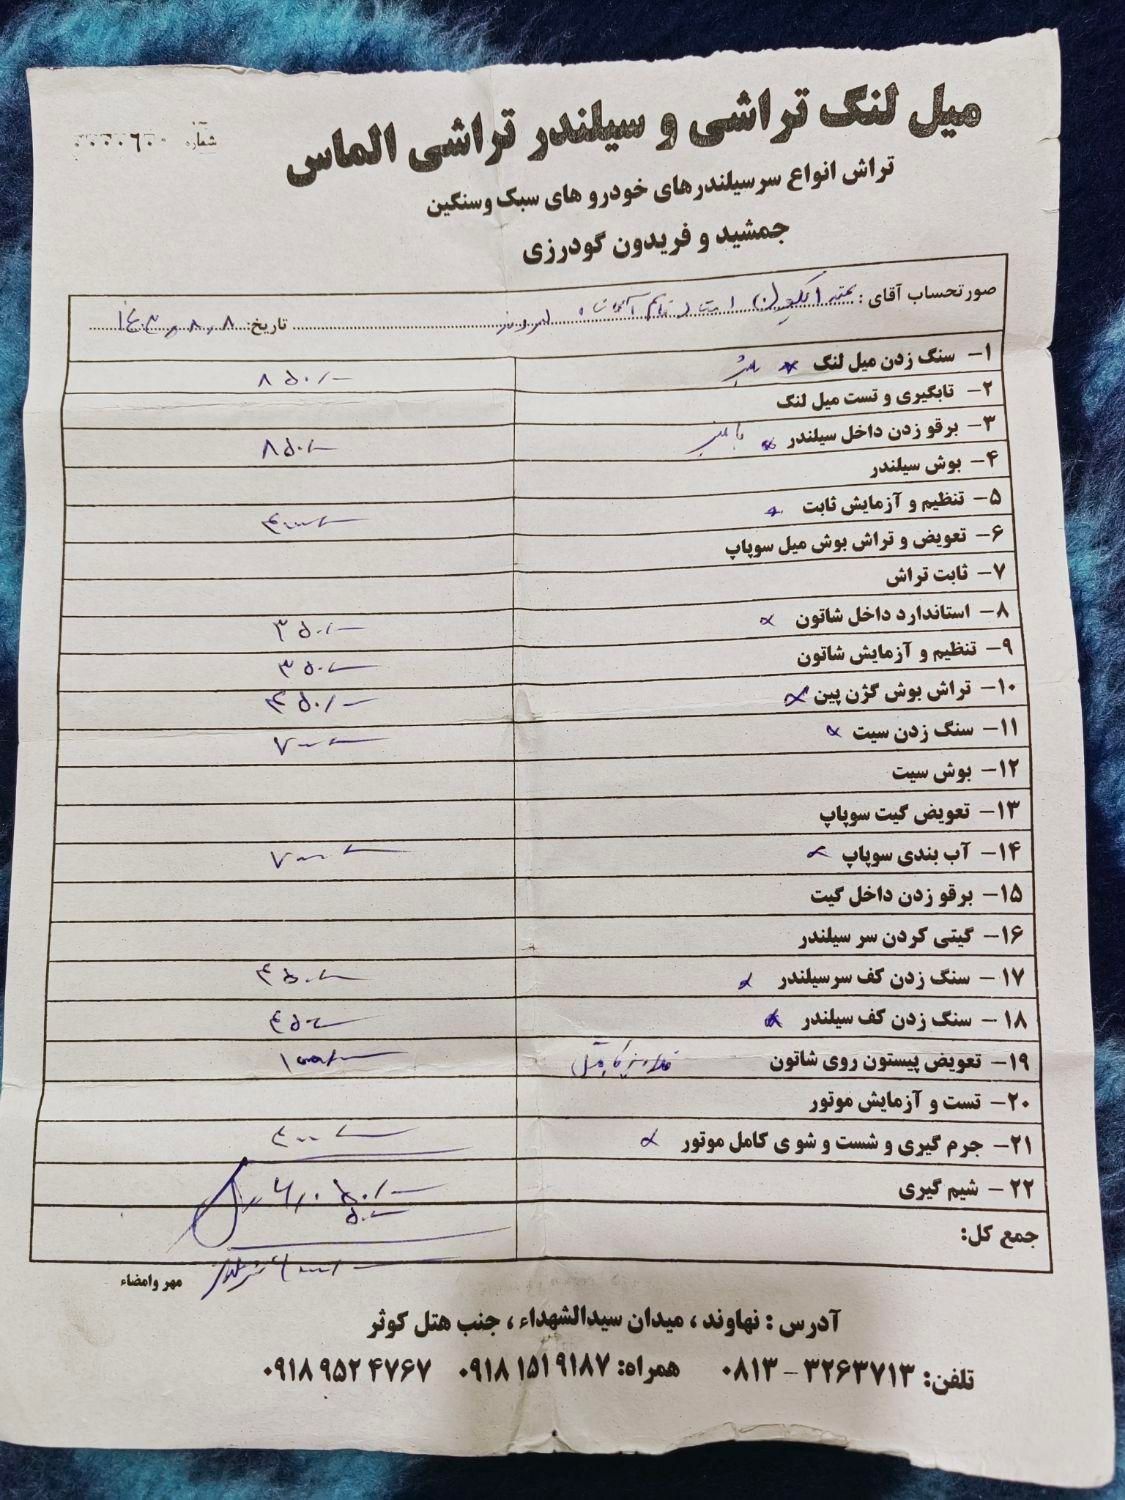 میل لنگ تراشی و سیلندر تراشی الماس
شماره ۰۰۰۰۶۰۰
تراش انواع سرسیلندرهای خودرو های سبک وسنگین
جمشید و فریدون گودرزی
صورتحساب آقای:
تاریخ: ۱۴۰۳،۸،۸
۱- سنگ زدن میل لنگ ۸۵۰/-
۲- تابگیری و تست میل لنگ
۳- برقو زدن داخل سیلندر ۸۵۰/-
۴- بوش سیلندر
۵- تنظیم و آزمایش ثابت ۴۰۰/-
۶- تعویض و تراش بوش میل سوپاپ
۷- ثابت تراش
۸- استاندارد داخل شاتون ۳۵۰/-
۹- تنظیم و آزمایش شاتون ۳۵۰/-
۱۰- تراش بوش گژن پین ۴۵۰/-
۱۱- سنگ زدن سیت ۷۰۰/-
۱۲- بوش سیت
۱۳- تعویض گیت سوپاپ
۱۴- آب بندی سوپاپ ۷۰۰/-
۱۵- برقو زدن داخل گیت
۱۶- گیتی کردن سر سیلندر
۱۷- سنگ زدن کف سرسیلندر ۴۵۰/-
۱۸- سنگ زدن کف سیلندر ۴۵۰/-
۱۹- تعویض پیستون روی شاتون
۲۰- تست و آزمایش موتور
۲۱- جرم گیری و شست و شو ی کامل موتور ۴۰۰/-
۲۲- شیم گیری
جمع کل:
مهر وامضاء
آدرس : نهاوند ، میدان سیدالشهداء ، جنب هتل کوثر
تلفن: ۳۲۶۳۷۱۳ - ۰۸۱۳ همراه: ۰۹۱۸ ۱۵۱ ۹۱۸۷ ۰۹۱۸ ۹۵۲ ۴۷۶۷